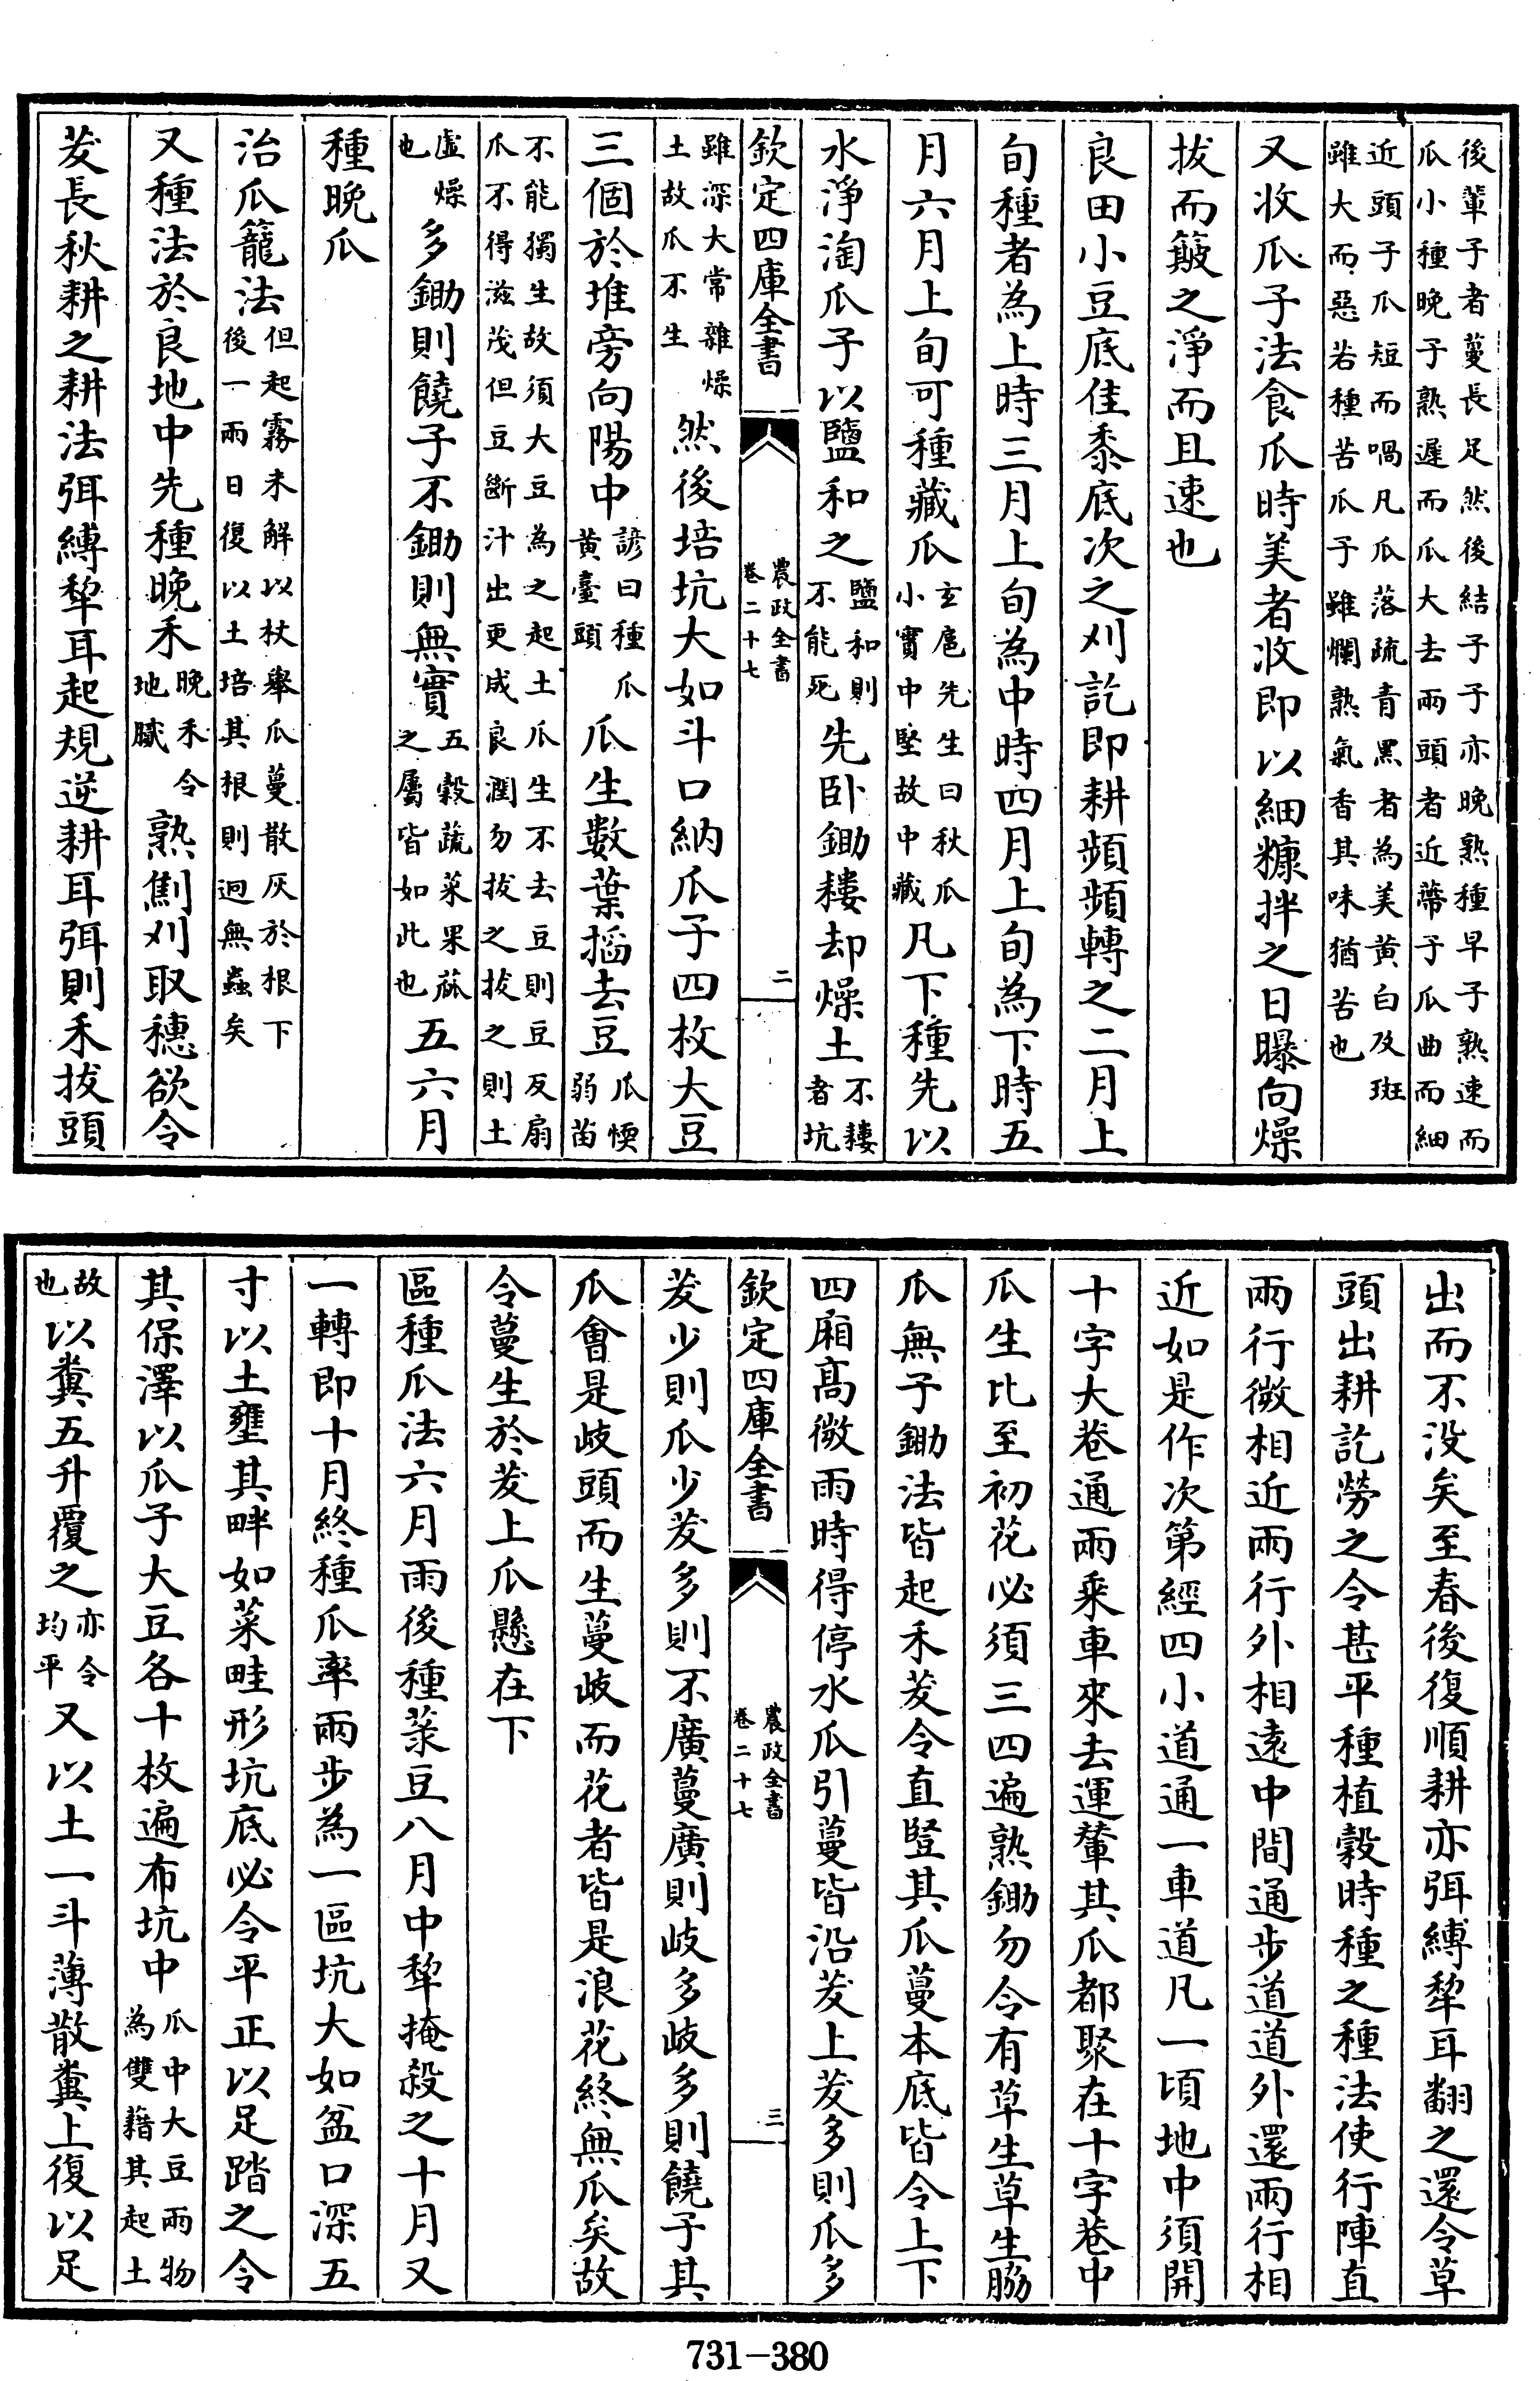 後輩子者蔓長足然後結子子亦晚熟種早子熟速而
瓜小種晚子熟遲而瓜大去兩頭者近蔕子瓜曲而細
近頭子瓜短而喎凡瓜落疏青黑者為美黄白及斑
雖大而惡若種苦瓜子雖爛熟氣香其味猶苦也
又收瓜子法食瓜時美者收即以細糠拌之日曝向燥
拔而簸之淨而且速也
良田小豆底佳黍底次之刈訖即耕頻頻轉之二月上
旬種者為上時三月上旬為中時四月上旬為下時五
月六月上旬可種藏瓜玄扈先生曰秋瓜小實中堅故中藏凡下種先以
水淨淘瓜子以鹽和之鹽和則不能死先卧鋤耬却燥土不耬者坑
欽定四庫全書 農政全書卷二十七 二
雖深大常雜燥土故瓜不生然後培坑大如斗口納瓜子四枚大豆
三個於堆旁向陽中諺曰種瓜黄臺頭瓜生數葉搯去豆瓜愞弱苗
不能獨生故須大豆為之起土瓜生不去豆則豆反扇
瓜不得滋茂但豆斷汁出更成良潤勿拔之拔之則土
虛燥也多鋤則饒子不鋤則無實五穀蔬菜果蓏之屬皆如此也五六月
種晚瓜
治瓜籠法但起霧未解以杖舉瓜蔓散灰於根下後一兩日復以土培其根則迥無蟲矣
又種法於良地中先種晚禾晚禾令地膩熟劁刈取穗欲令
茇長秋耕之耕法弭縛犂耳起規逆耕耳弭則禾拔頭
出而不没矣至春後復順耕亦弭縛犂耳翻之還令草
頭出耕訖勞之令甚平種植穀時種之種法使行陣直
兩行微相近兩行外相遠中間通步道道外還兩行相
近如是作次第經四小道通一車道凡一頃地中須開
十字大巷通兩乘車來去運輦其瓜都聚在十字巷中
瓜生比至初花必須三四遍熟鋤勿令有草生草生脇
瓜無子鋤法皆起禾茇令直豎其瓜蔓本底皆令上下
四廂高微雨時得停水瓜引蔓皆沿茇上茇多則瓜多
欽定四庫全書 農政全書卷二十七 三
茇少則瓜少茇多則不廣蔓廣則歧多歧多則饒子其
瓜會是歧頭而生蔓歧而花者皆是浪花終無瓜矣故
令蔓生於茇上瓜懸在下
區種瓜法六月雨後種菉豆八月中犂掩殺之十月又
一轉即十月終種瓜率兩步為一區坑大如盆口深五
寸以土壅其畔如菜畦形坑底必令平正以足踏之令
其保澤以瓜子大豆各十枚遍布坑中瓜中大豆兩物為雙藉其起土
故也以糞五升覆之亦令均平又以土一斗薄散糞上復以足
731-380